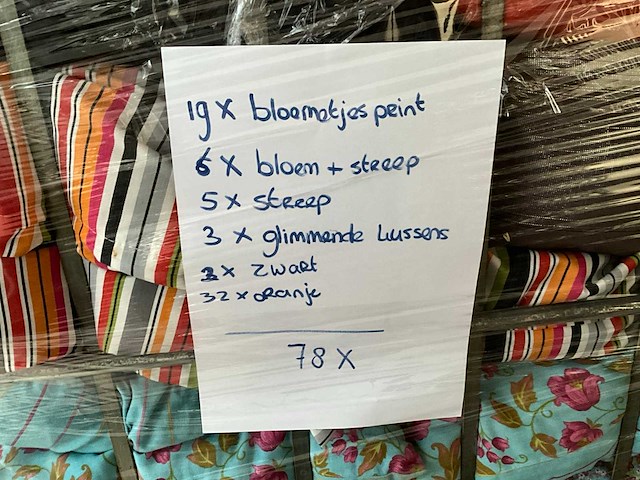 19 x bloemetjes peint
6 x bloem + streep
5 x streep
3 x glimmende kussens
3 x zwart
32 x oranje
78 x